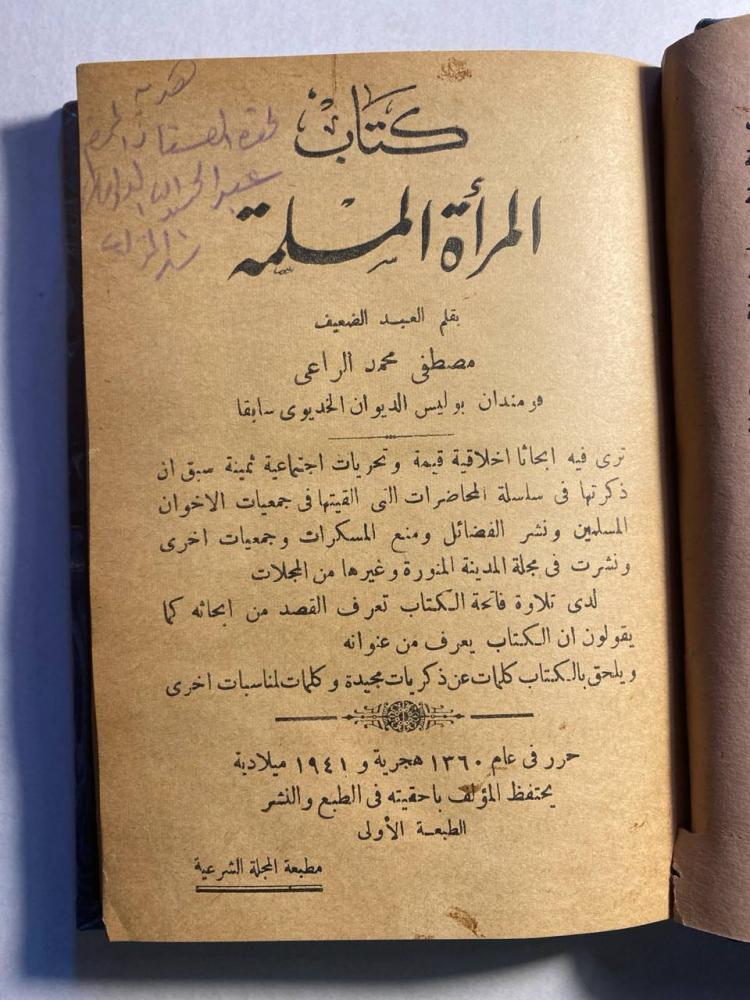 هدية
عبد الحميد
كتاب
المرأة المسلمة
بقلم العبد الضعيف
مصطفى محمد الراعى
قومندان بوليس الديوان الخديوى سابقا
ترى فيه ابحاثا اخلاقية قيمة وتحريات اجتماعية ثمينة سبق ان
ذكرتها فى سلسلة المحاضرات التى القيتها فى جمعيات الاخوان
المسلمين ونشر الفضائل ومنع المسكرات وجمعيات اخرى
ونشرت فى مجلة المدينة المنورة وغيرها من المجلات
لدى تلاوة فاتحة الكتاب تعرف القصد من ابحاثه كما
يقولون ان الكتاب يعرف من عنوانه
ويلحق بالكتاب كلمات عن ذكريات مجيدة وكلمات لمناسبات اخرى
حرر فى عام ١٣٦٠ هجرية و ١٩٤١ ميلادية
يحتفظ المؤلف باحقيته فى الطبع والنشر
الطبعة الأولى
مطبعة المجلة الشرعية